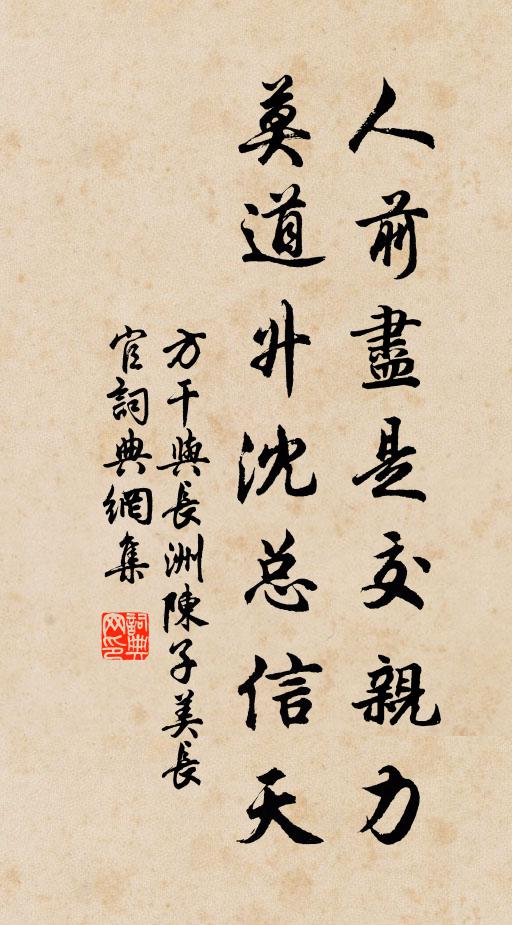 人前盡是交親力
莫道升沈总信天
方干與長洲陳子美長
官詞典網集
詞典网印